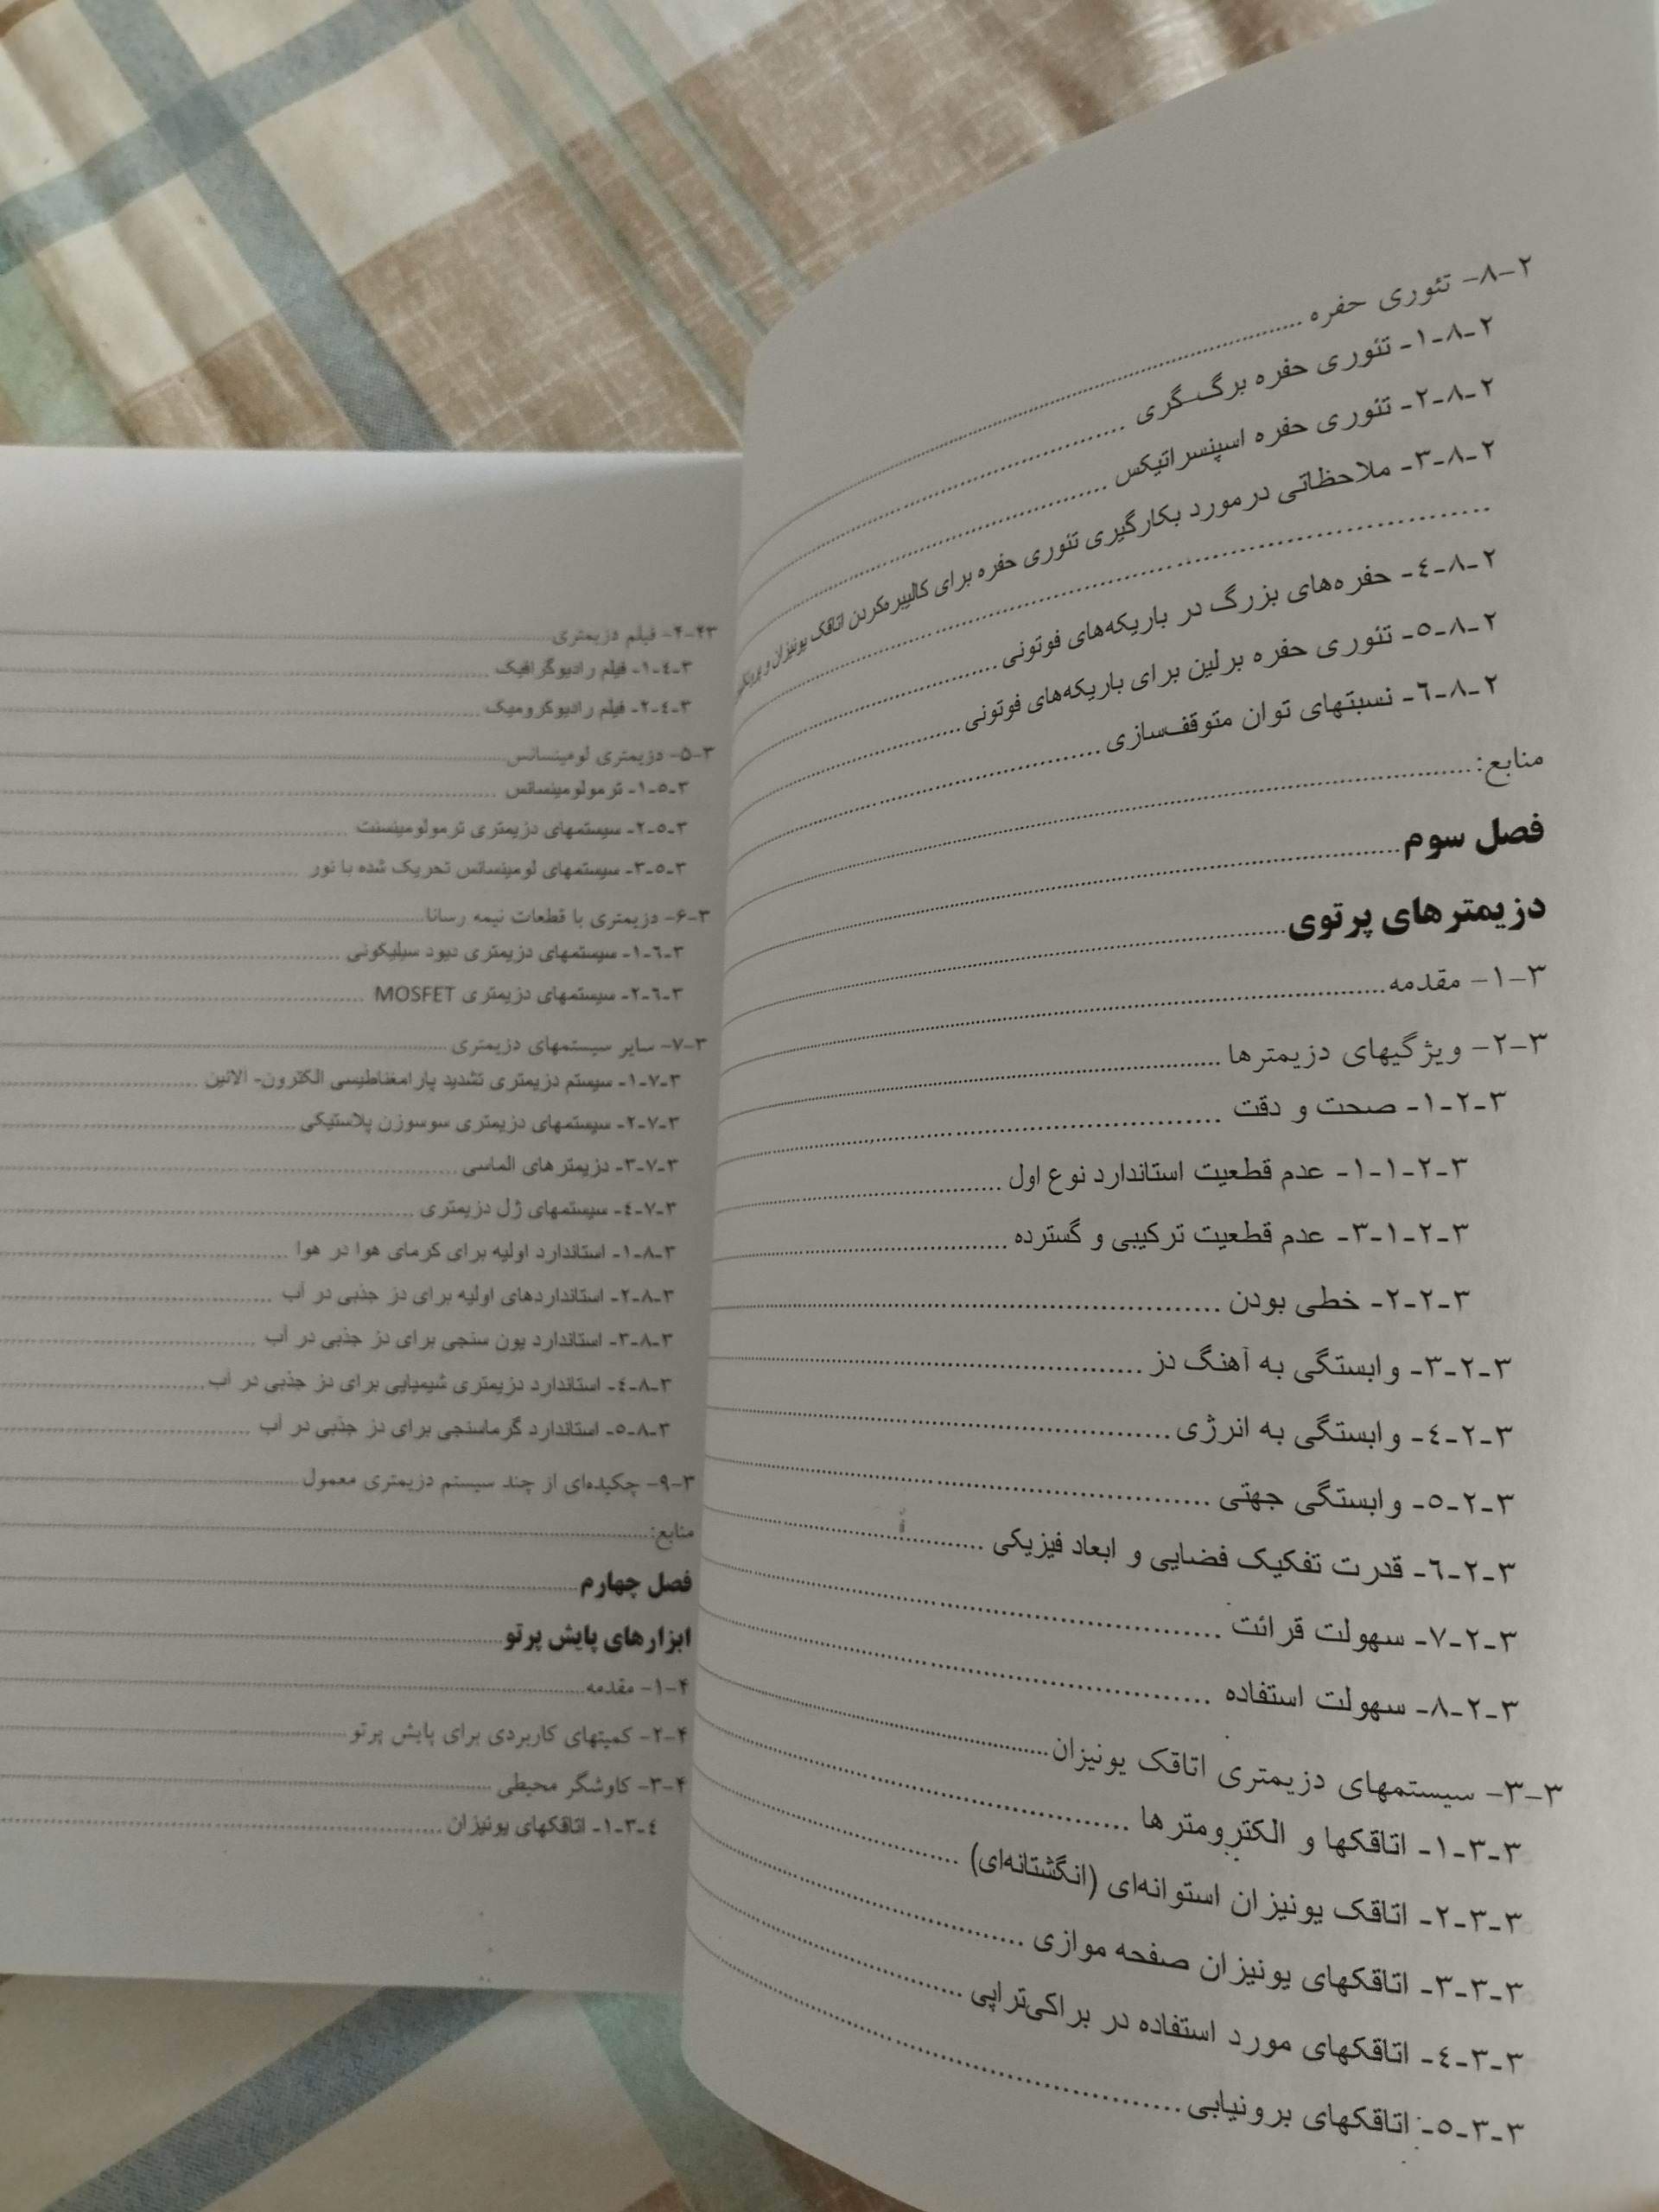 ۲-۸- تئوری حفره
۲-۸-۱- تئوری حفره برگ گری
۲-۸-۲- تئوری حفره اسپنسراتیکس
۲-۸-۳- ملاحظاتی درمورد بکارگیری تئوری حفره برای کالیبره‌کردن اتاقک یونیزان و
۲-۸-٤- حفره‌های بزرگ در باریکه‌های فوتونی
۲-۸-٥- تئوری حفره برلین برای باریکه‌های فوتونی
۲-۸-٦- نسبتهای توان متوقف‌سازی
منابع:
فصل سوم
دزیمترهای پرتوی
۳-۱- مقدمه
۳-۲- ویژگیهای دزیمترها
۳-۲-۱- صحت و دقت
۳-۲-۱-۱- عدم قطعیت استاندارد نوع اول
۳-۲-۱-۳- عدم قطعیت ترکیبی و گسترده
۳-۲-۲- خطی بودن
۳-۲-۳- وابستگی به آهنگ دز
۳-۲-٤- وابستگی به انرژی
۳-۲-٥- وابستگی جهتی
۳-۲-٦- قدرت تفکیک فضایی و ابعاد فیزیکی
۳-۲-۷- سهولت قرائت
۳-۲-۸- سهولت استفاده
۳-۳- سیستمهای دزیمتری اتاقک یونیزان
۳-۳-۱- اتاقکها و الکترومترها
۳-۳-۲- اتاقک یونیزان استوانه‌ای (انگشتانه‌ای)
۳-۳-۳- اتاقکهای یونیزان صفحه موازی
۳-۳-٤- اتاقکهای مورد استفاده در براکی‌تراپی
۳-۳-٥- اتاقکهای برونیابی
فیلم دزیمتری
۳-٤-۱- فیلم رادیوگرافیک
۳-٤-۲- فیلم رادیوکرومیک
۳-۵- دزیمتری لومینسانس
۳-٥-۱- ترمولومینسانس
۳-٥-۲- سیستمهای دزیمتری ترمولومینسنت
۳-٥-۳- سیستمهای لومینسانس تحریک شده با نور
۳-۶- دزیمتری با قطعات نیمه رسانا
۳-٦-۱- سیستمهای دزیمتری دیود سیلیکونی
۳-٦-۲- سیستمهای دزیمتری MOSFET
۳-۷- سایر سیستمهای دزیمتری
۳-۷-۱- سیستم دزیمتری تشدید پارامغناطیسی الکترون- الانین
۳-۷-۲- سیستمهای دزیمتری سوسوزن پلاستیکی
۳-۷-۳- دزیمترهای الماسی
۳-۷-٤- سیستمهای ژل دزیمتری
۳-۸-۱- استاندارد اولیه برای کرمای هوا در هوا
۳-۸-۲- استانداردهای اولیه برای دز جذبی در آب
۳-۸-۳- استاندارد یون سنجی برای دز جذبی در آب
۳-۸-٤- استاندارد دزیمتری شیمیایی برای دز جذبی در آب
۳-۸-٥- استاندارد گرماسنجی برای دز جذبی در آب
۳-۹- چکیده‌ای از چند سیستم دزیمتری معمول
منابع:
فصل چهارم
ابزارهای پایش پرتو
۴-۱- مقدمه
۴-۲- کمیتهای کاربردی برای پایش پرتو
۴-۳- کاوشگر محیطی
٤-۳-۱- اتاقکهای یونیزان